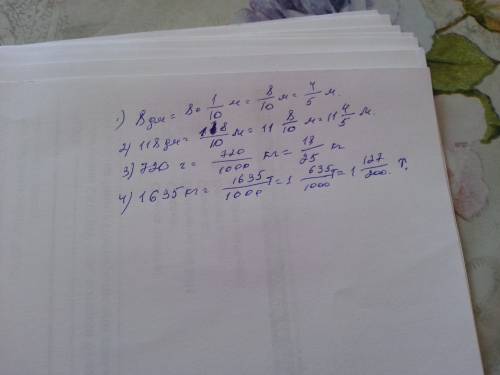 1) 8 дм = 8 · 1/10 м = 8/10 м = 4/5 м.
2) 118 дм = 118/10 м = 11 8/10 м = 11 4/5 м.
3) 720 г = 720/1000 кг = 18/25 кг
4) 1635 кг = 1635/1000 т = 1 635/1000 т = 1 127/200 т.